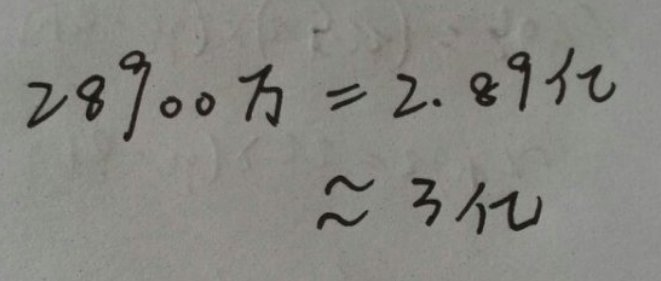 28900万=2.89亿
≈3亿